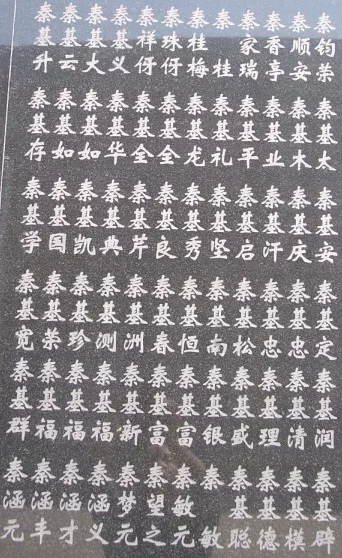 秦钧荣
秦顺安
秦香亭
秦家瑞
秦桂
秦桂梅
秦珠伢
秦祥伢
秦基义
秦基大
秦基云
秦基升
秦基大
秦基木
秦基业
秦基平
秦基礼
秦基龙
秦基全
秦基全
秦基华
秦基如
秦基如
秦基存
秦基安
秦基庆
秦基汗
秦基启
秦基坚
秦基秀
秦基良
秦基芹
秦基典
秦基凯
秦基国
秦基学
秦基定
秦基忠
秦基忠
秦基松
秦基南
秦基恒
秦基春
秦基洲
秦基测
秦基珍
秦基荣
秦基宽
秦基润
秦基清
秦基理
秦基盛
秦基银
秦基富
秦基富
秦基新
秦基福
秦基福
秦基福
秦基群
秦基辟
秦基模
秦基德
秦基聪
秦敏
秦敏元
秦望之
秦梦元
秦涵义
秦涵才
秦涵丰
秦涵元